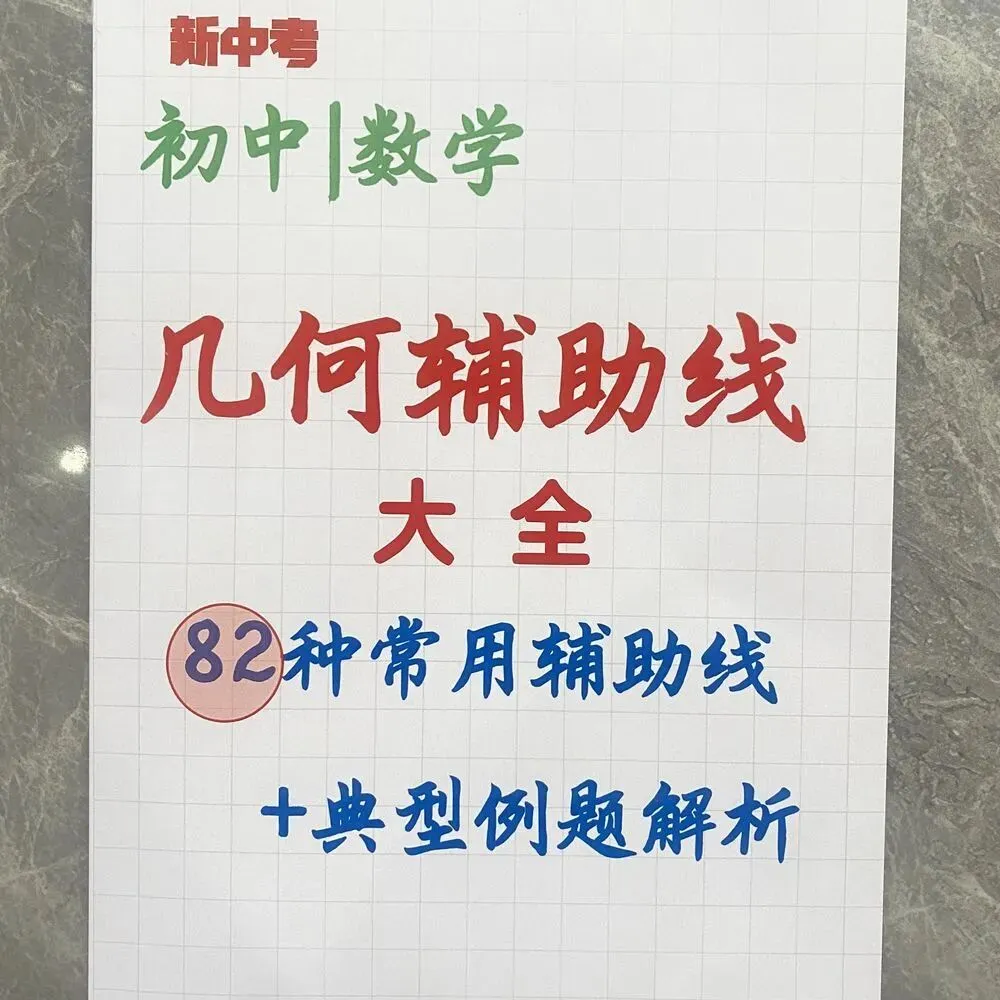 新中考
初中|数学
几何辅助线
大全
82种常用辅助线
+典型例题解析